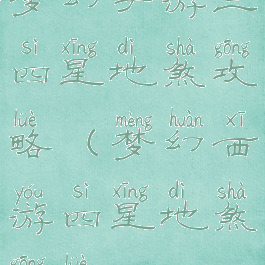 梦幻西游三
sì xīng dì shà gōng
四星地煞攻
lüè mèng huàn xī
略（梦幻西
yóu sì xīng dì shà
游四星地煞
gōng lüè